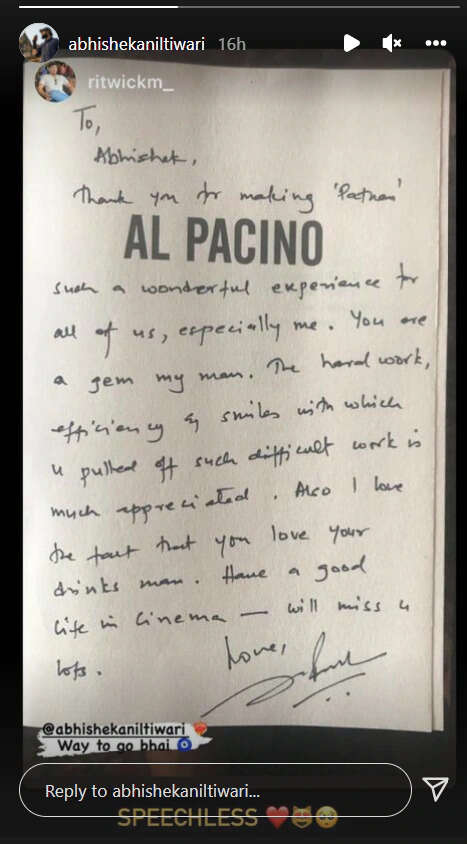 abhishekaniltiwari 16h
ritwickm_
To,
Abhishek,
Thank you for making 'Pathan'
AL PACINO
such a wonderful experience for
all of us, especially me. You are
a gem my man. The hard work,
efficiency & smiles with which
u pulled off such difficult work is
much appreciated. Also I love
the fact that you love your
drinks man. Have a good
life in cinema — will miss u
lots.
Love,
@abhishekaniltiwari
Way to go bhai
Reply to abhishekaniltiwari...
SPEECHLESS